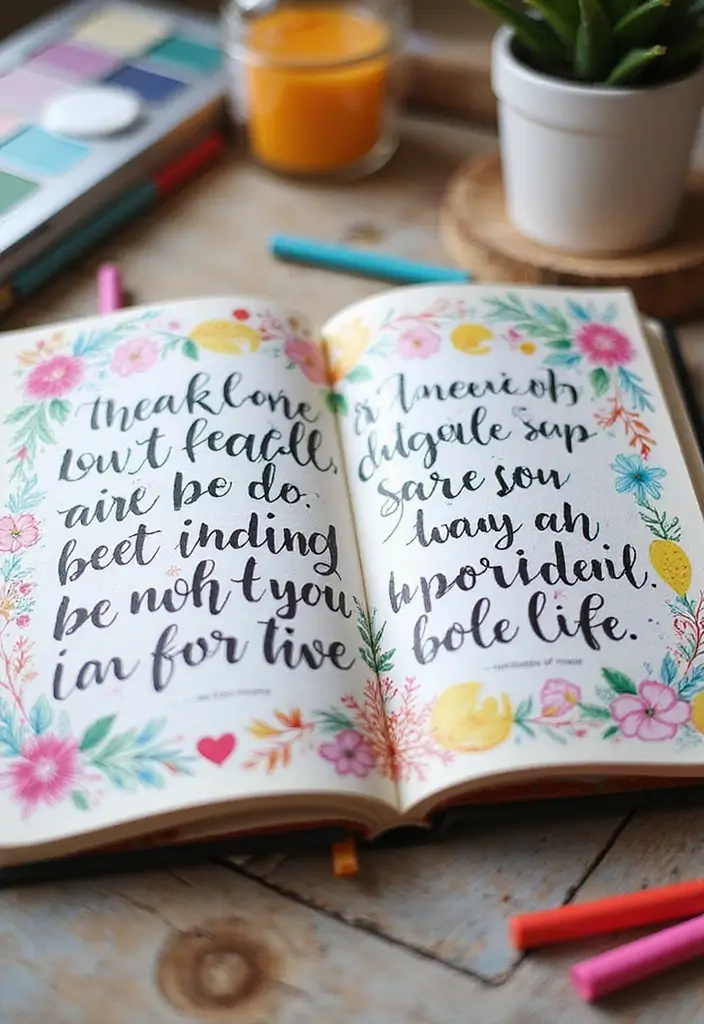 theaklone
lowt feacll,
aire be do.
beet inding
be noht you
ian for tive
Ameeicob
dutgoale sap
sare sou
way ah
bporidenil.
bole life.